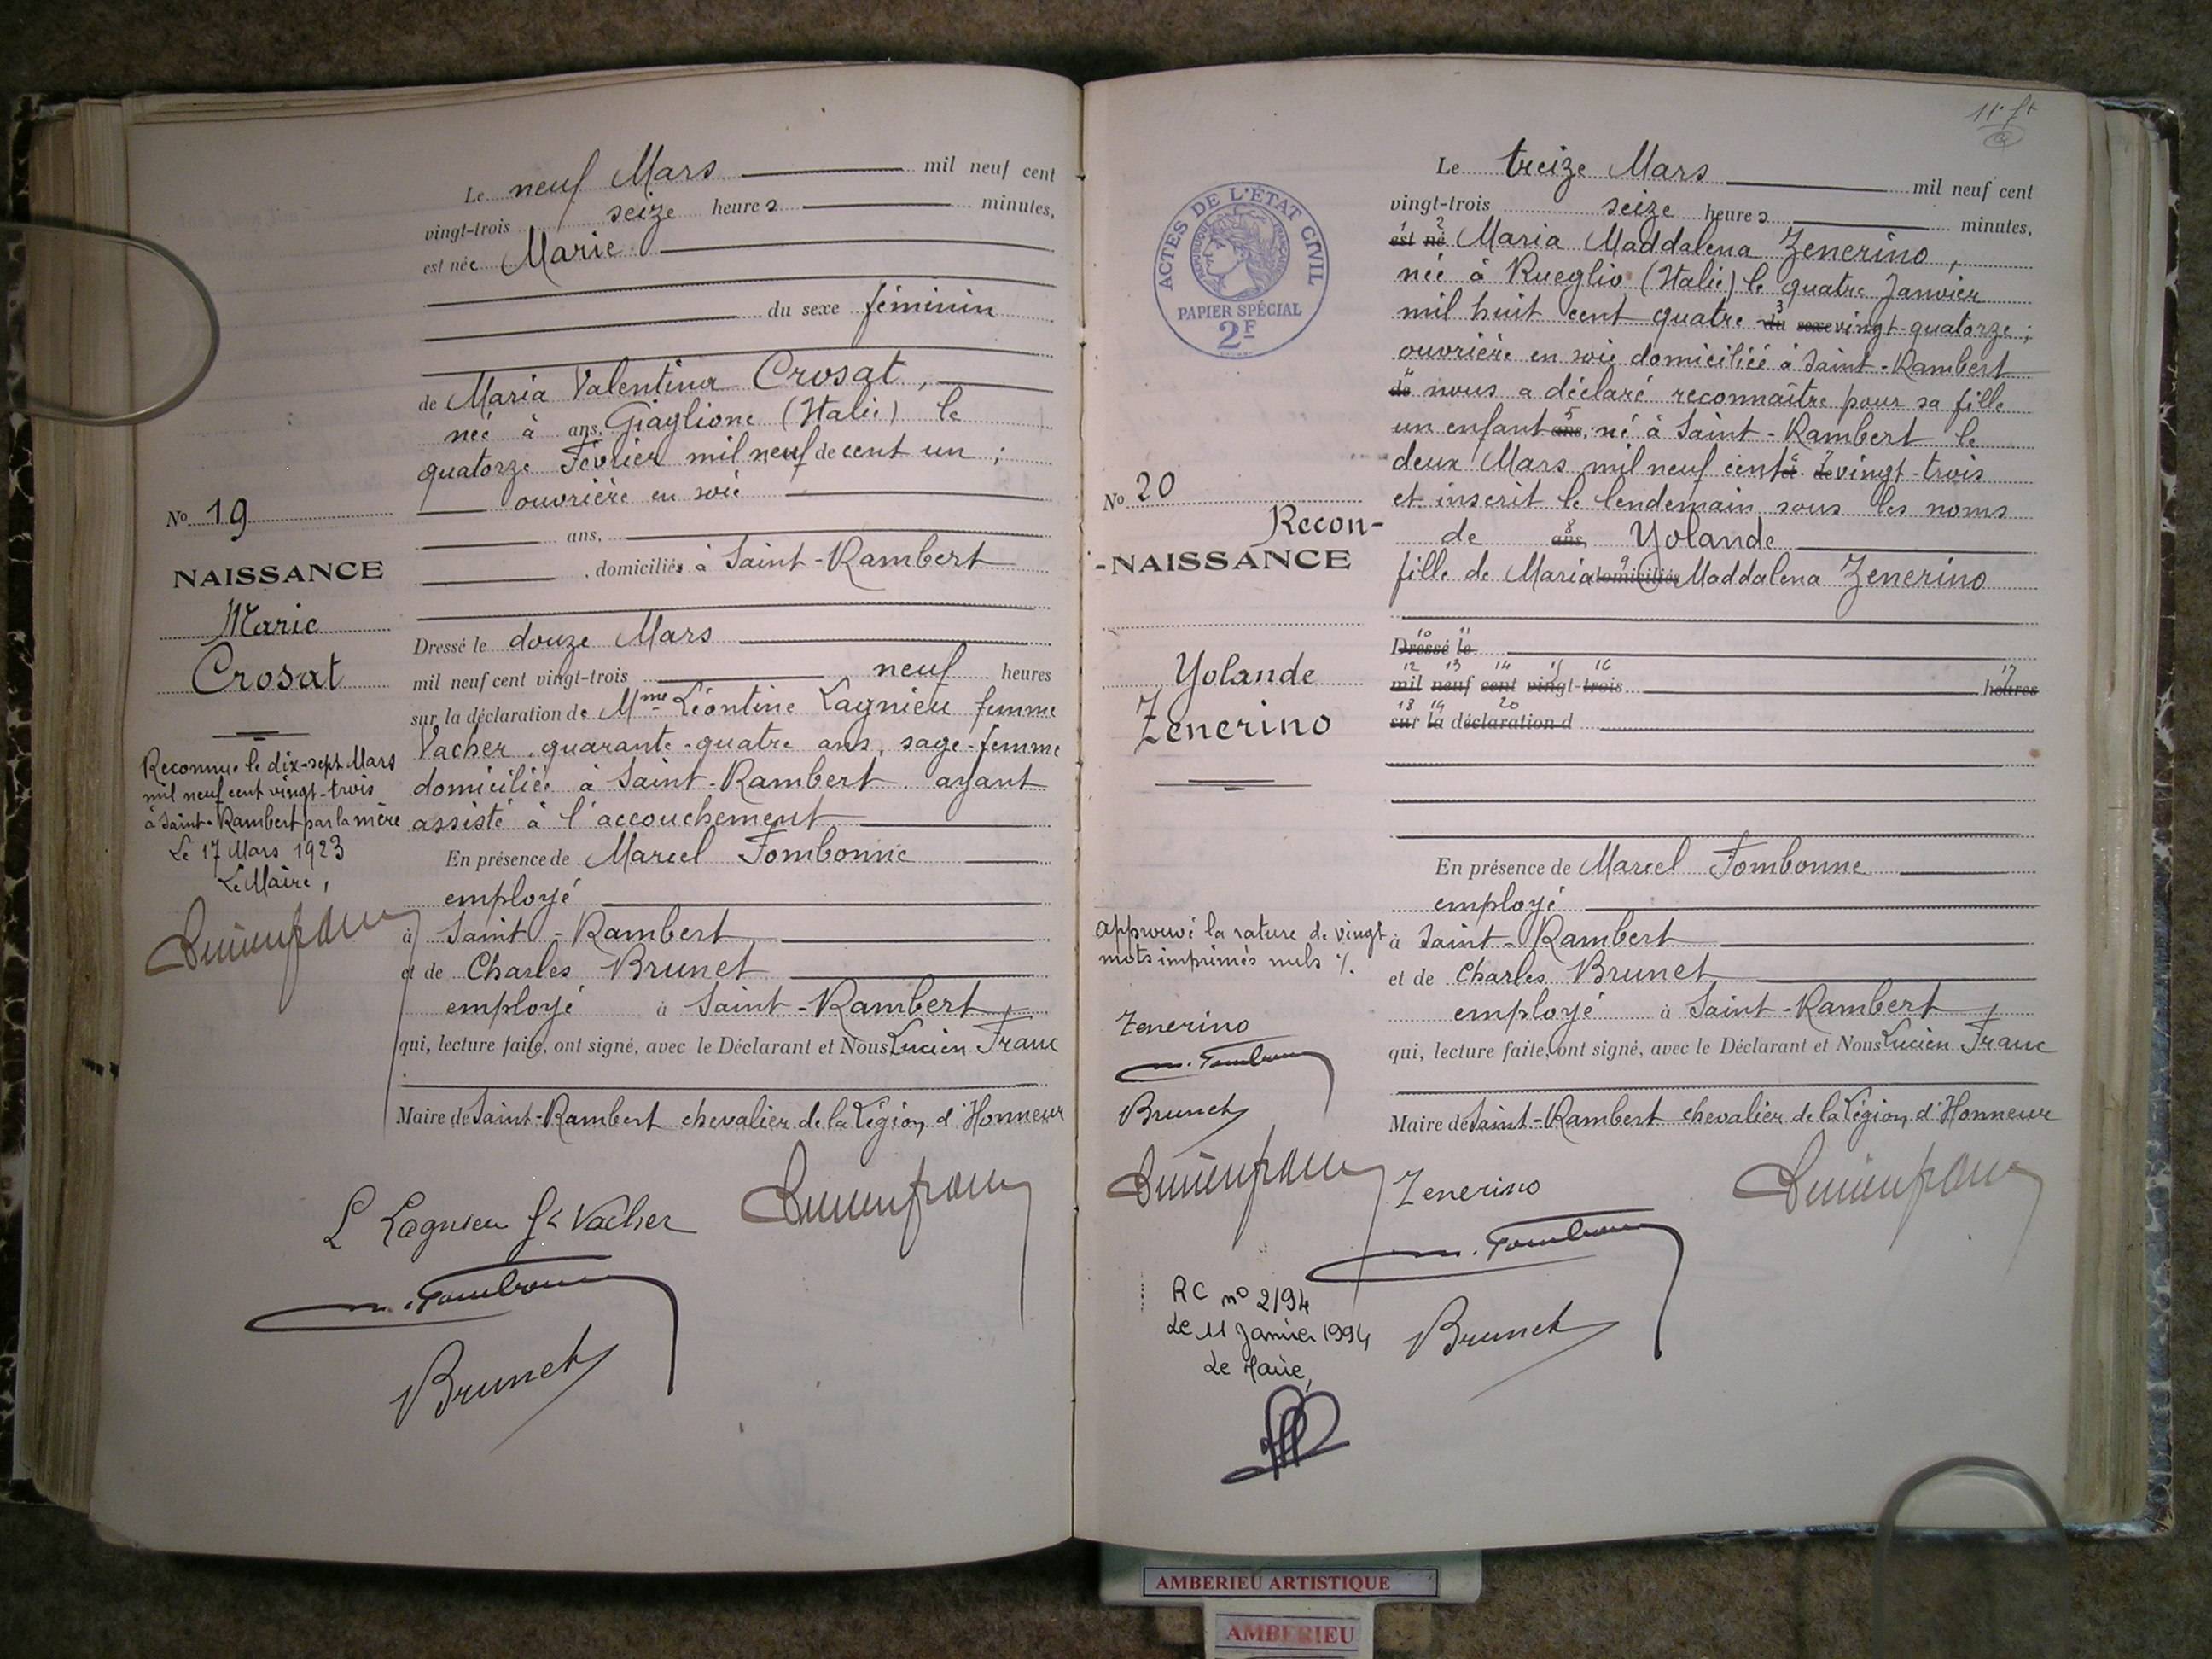 Le neuf Mars mil neuf cent
vingt-trois seize heures minutes,
est née Marie
du sexe féminin
de Maria Valentina Crosat,
née à ans, Giaglione (Italie) le
quatorze Février mil neuf de cent un ;
ouvrière en soie
ans,
, domiciliés à Saint-Rambert
No 19
NAISSANCE
Marie
Crosat
Reconnue le dix-sept Mars
mil neuf cent vingt-trois
à Saint-Rambert par la mère
Le 17 Mars 1923
Le Maire,
Lucien franc
Dressé le douze Mars
mil neuf cent vingt-trois neuf heures
sur la déclaration de Mme Léontine Lagnieu femme
Vacher, quarante-quatre ans, sage-femme
domiciliée à Saint-Rambert ayant
assisté à l'accouchement
En présence de Marcel Fombonne
employé
à Saint-Rambert
et de Charles Brunet
employé à Saint-Rambert
qui, lecture faite, ont signé, avec le Déclarant et Nous Lucien Franc
Maire de Saint-Rambert chevalier de la Légion d'Honneur
L Lagnieu fe Vacher
Lucien franc
m. Fombonne
Brunet
11e ft
ACTES DE L'ÉTAT CIVIL
RÉPUBLIQUE FRANÇAISE
PAPIER SPÉCIAL
2F
Le treize Mars mil neuf cent
vingt-trois seize heures minutes,
1 2
est né Maria Maddalena Zenerino,
née à Rueglio (Italie) le quatre Janvier
3
mil huit cent quatre du sexe vingt-quatorze ;
ouvrière en soie domiciliée à Saint-Rambert
4
de nous a déclaré reconnaître pour sa fille
5
un enfant ans, né à Saint-Rambert le
6 7
deux Mars mil neuf cent et de vingt-trois
et inscrit le lendemain sous les noms
8
de ans, Yolande
9
fille de Maria domiciliés Maddalena Zenerino
No 20
Recon-
-NAISSANCE
Yolande
Zenerino
10 11
Dressé le
12 13 14 15 16 17
mil neuf cent vingt-trois heures
18 19 20
sur la déclaration d
En présence de Marcel Fombonne
employé
à Saint-Rambert
et de Charles Brunet
employé à Saint-Rambert
qui, lecture faite, ont signé, avec le Déclarant et Nous Lucien Franc
Maire de Saint-Rambert chevalier de la Légion d'Honneur
Approuvé la rature de vingt
mots imprimés nuls %.
Zenerino
m. Fombonne
Brunet
Lucien franc
Zenerino
Lucien franc
m. Fombonne
Brunet
RC no 2/94
Le 11 Janvier 1994
Le Maire,
AMBERIEU ARTISTIQUE
AMBERIEU